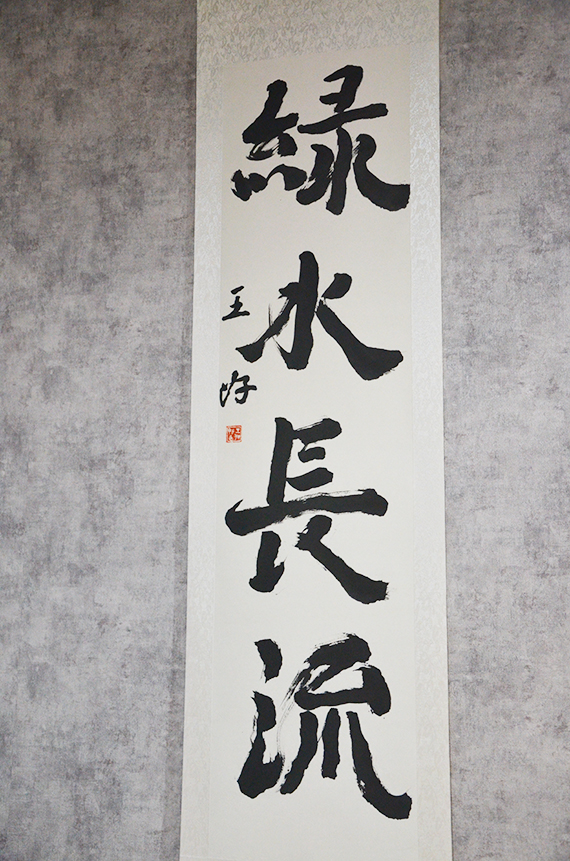 緑水長流
王